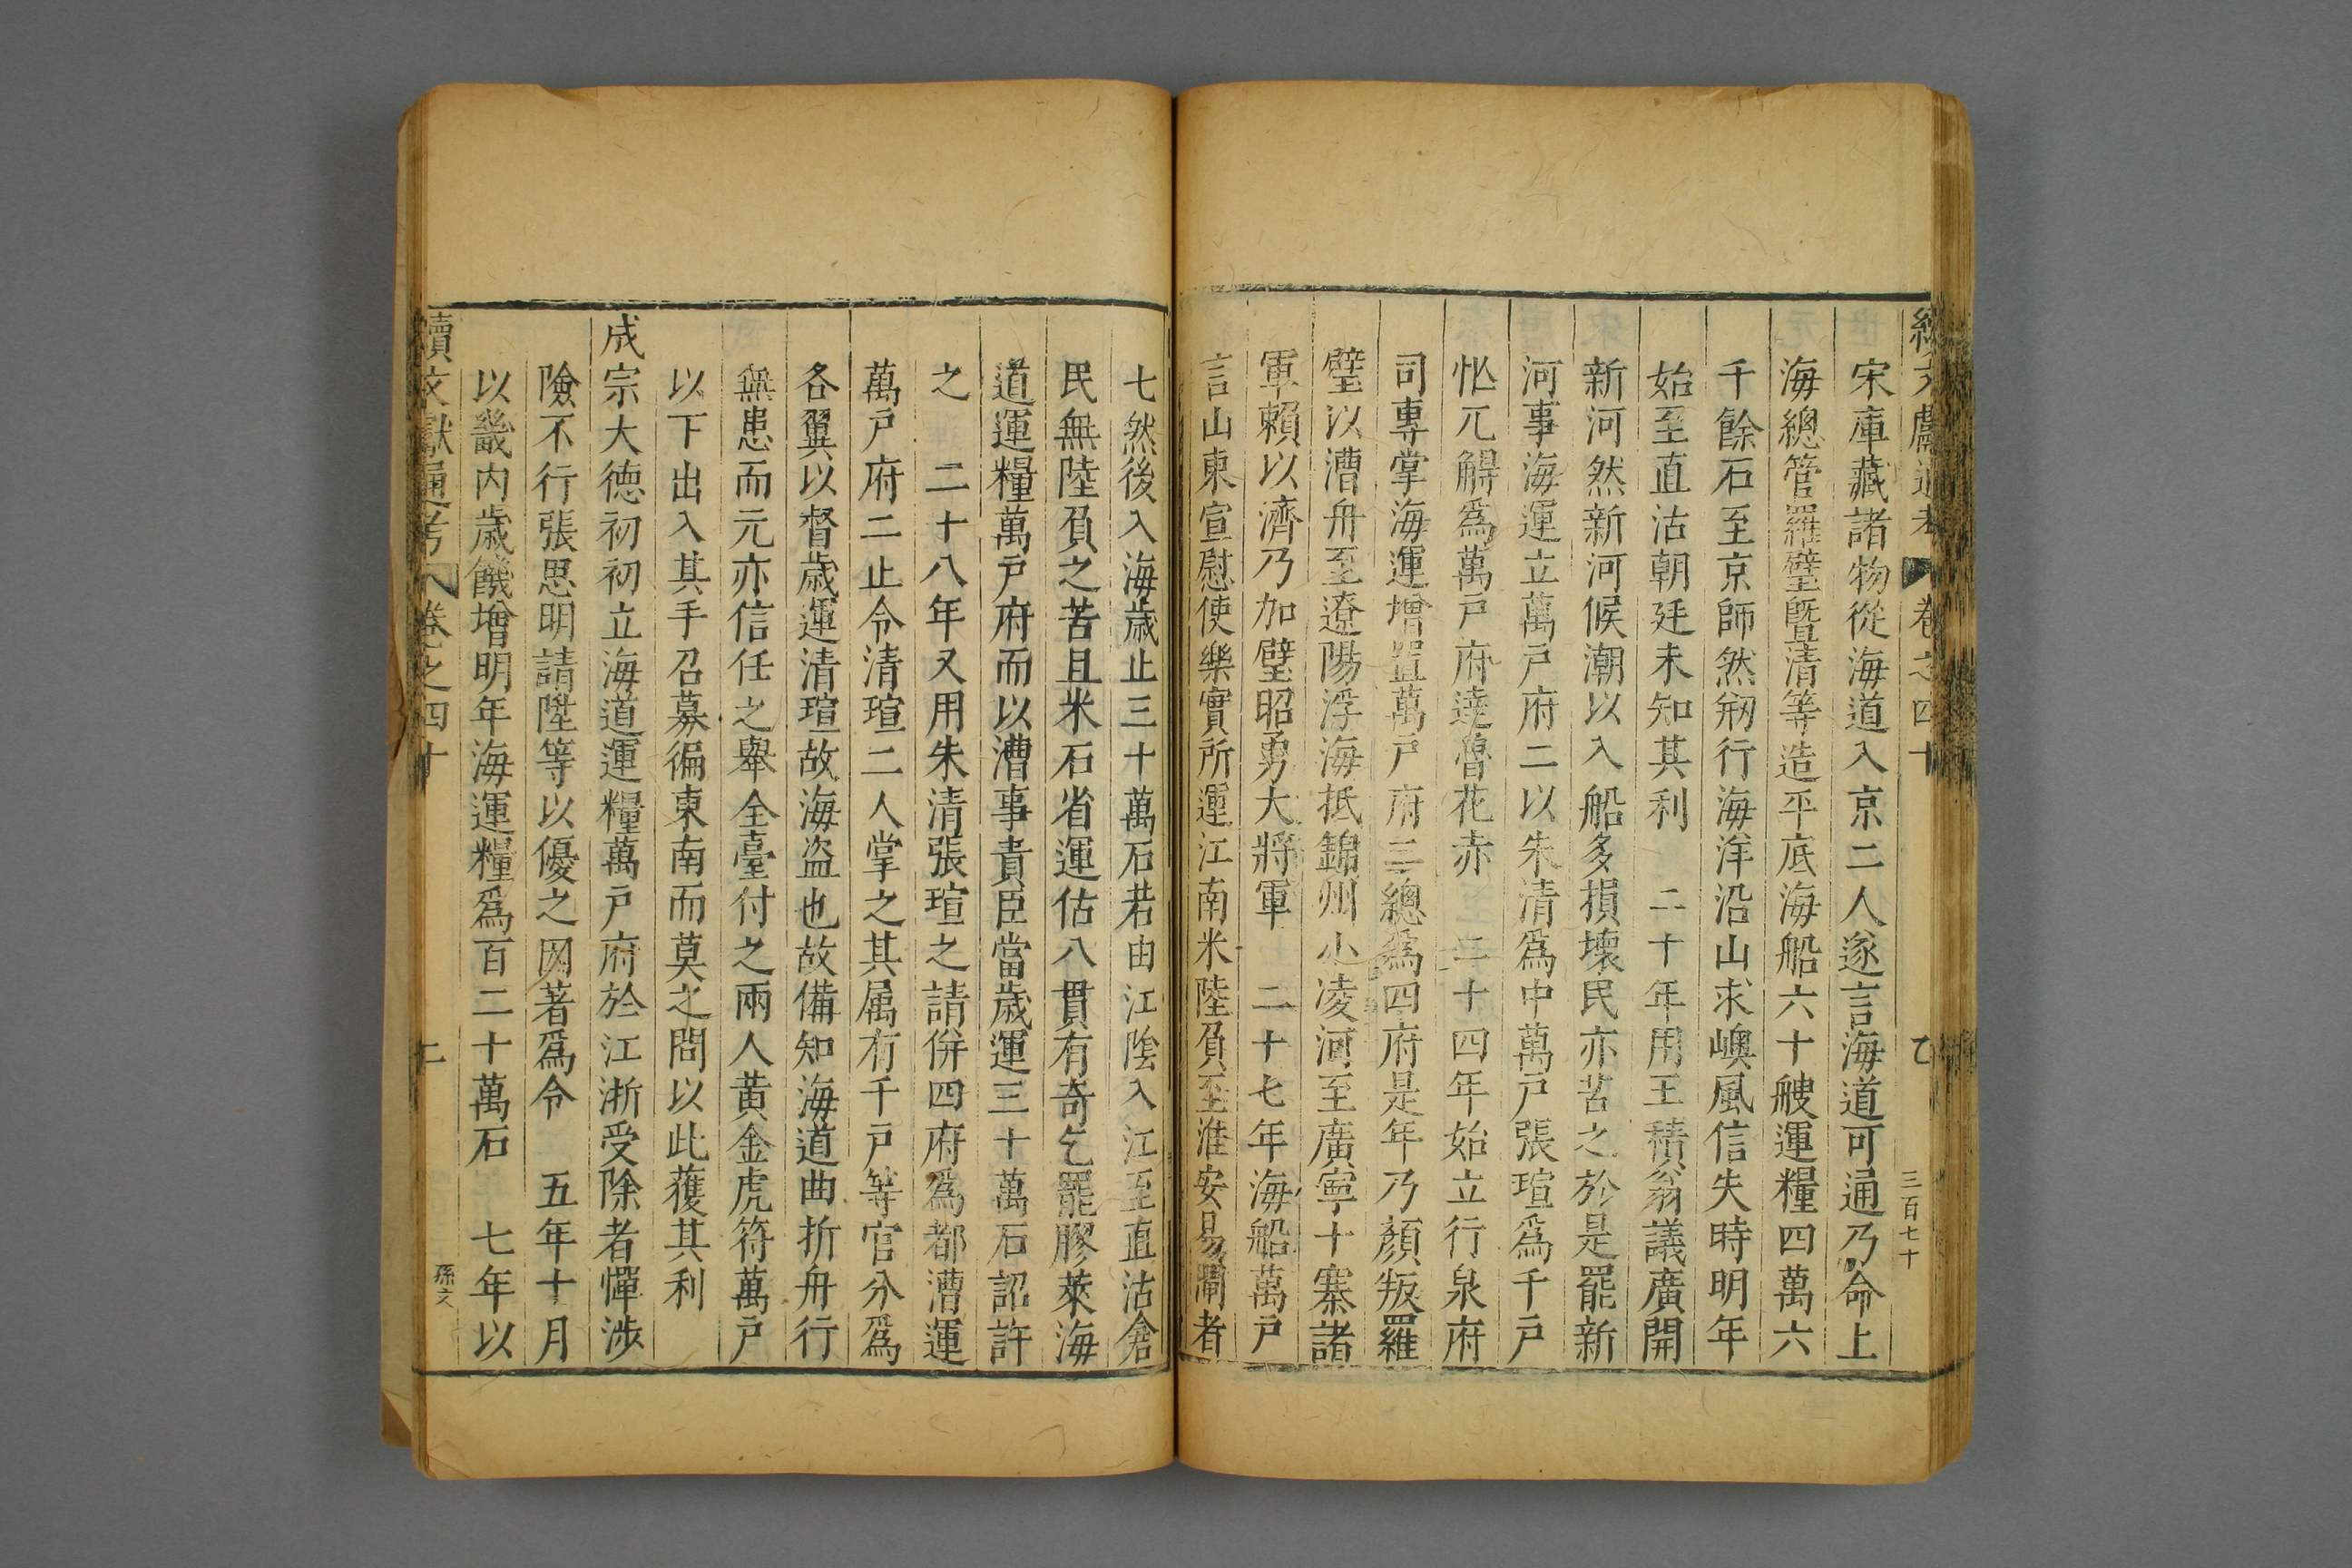 續文獻通考 卷之四十 七 三百七十
宋庫藏諸物從海道入京二人遂言海道可通乃命上
海總管羅璧曁清等造平底海船六十艘運糧四萬六
千餘石至京師然剏行海洋沿山求嶴風信失時明年
始至直沽朝廷未知其利 二十年用王積翁議廣開
新河然新河候潮以入船多損壞民亦苦之於是罷新
河事海運立萬戶府二以朱清爲中萬戶張瑄爲千戶
忙兀䚟爲萬戶府達魯花赤 二十四年始立行泉府
司專掌海運增置萬戶府二總爲四府是年乃顏叛羅
璧以漕舟至遼陽浮海抵錦州小凌河至廣寧十寨諸
軍賴以濟乃加璧昭勇大將軍 二十七年海船萬戶
言山東宣慰使樂實所運江南米陸負至淮安易閘者
七然後入海歲止三十萬石若由江陰入江至直沽倉
民無陸負之苦且米石省運估八貫有奇乞罷膠萊海
道運糧萬戶府而以漕事責臣當歲運三十萬石詔許
之 二十八年又用朱清張瑄之請併四府爲都漕運
萬戶府二止令清瑄二人掌之其属有千戶等官分爲
各翼以督歲運清瑄故海盗也故備知海道曲折舟行
無患而元亦信任之舉全臺付之兩人黄金虎符萬戶
以下出入其手召募徧東南而莫之問以此獲其利
成宗大德初初立海道運糧萬戶府於江浙受除者憚涉
險不行張思明請陞等以優之因著爲令 五年十月
以畿内歲饑增明年海運糧爲百二十萬石 七年以
續文獻通考 卷之四十 二 孫文